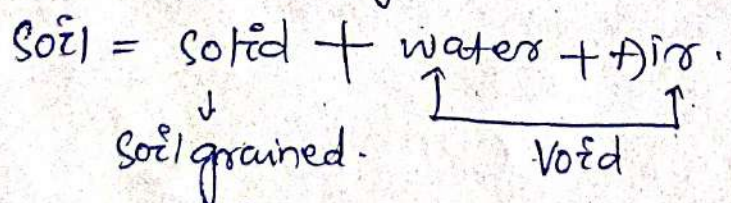 Soil = Solid + water + Air.
↓
Soil grained. Void